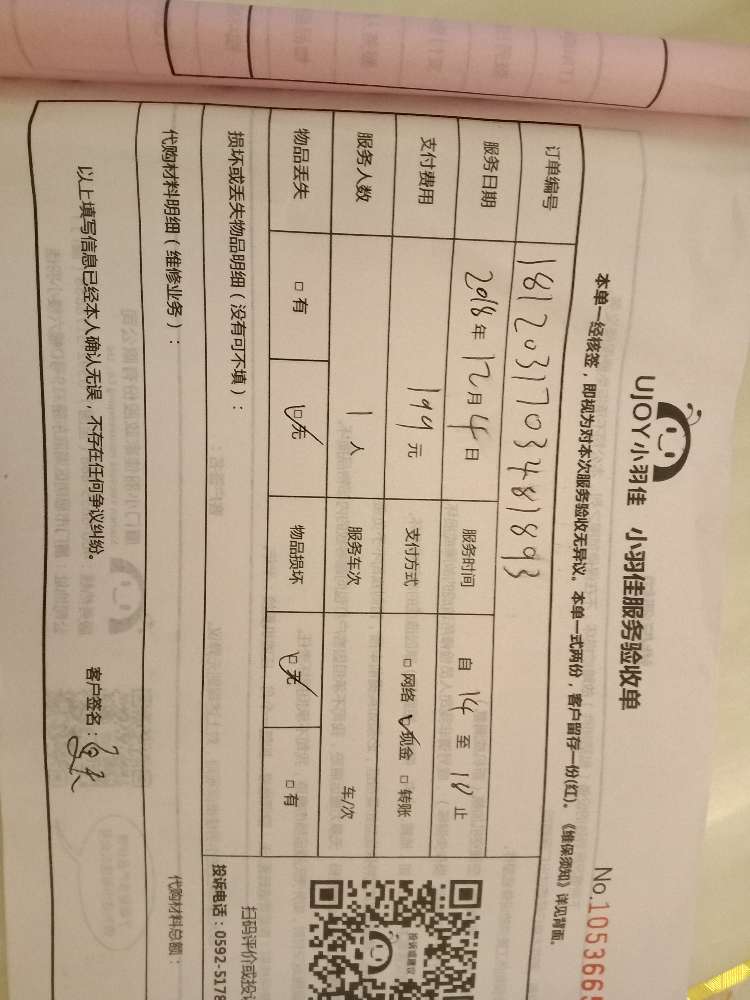 UJOY小羽佳 小羽佳服务验收单
No.1053669
本单一经核签，即视为对本次服务验收无异议。本单一式两份，客户留存一份(红)。《维保须知》详见背面。
订单编号 181203170348 1893
服务日期 2018年12月4日 服务时间 自 14 至 18 止
支付费用 199元 支付方式 □ 网络 □ 现金 □ 转账
服务人数 1 人 服务车次 车/次
物品丢失 □ 有 □ 无 物品损坏 □ 无 □ 有
损坏或丢失物品明细（没有可不填）：
代购材料明细（维修业务）：
代购材料总额：
以上填写信息已经本人确认无误，不存在任何争议纠纷。
客户签名：
投诉或建议
扫码评价或投
投诉电话：0592-5178